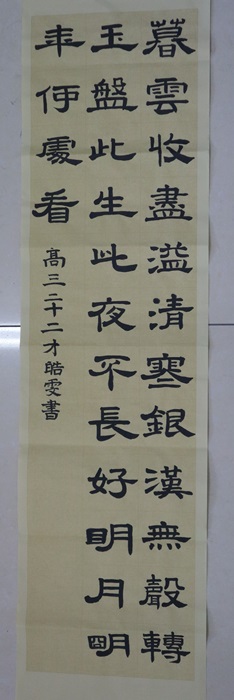 暮雲收盡溢清寒銀漢無聲轉
玉盤此生此夜不長好明月明
年何處看
高三二十二才皓雯書